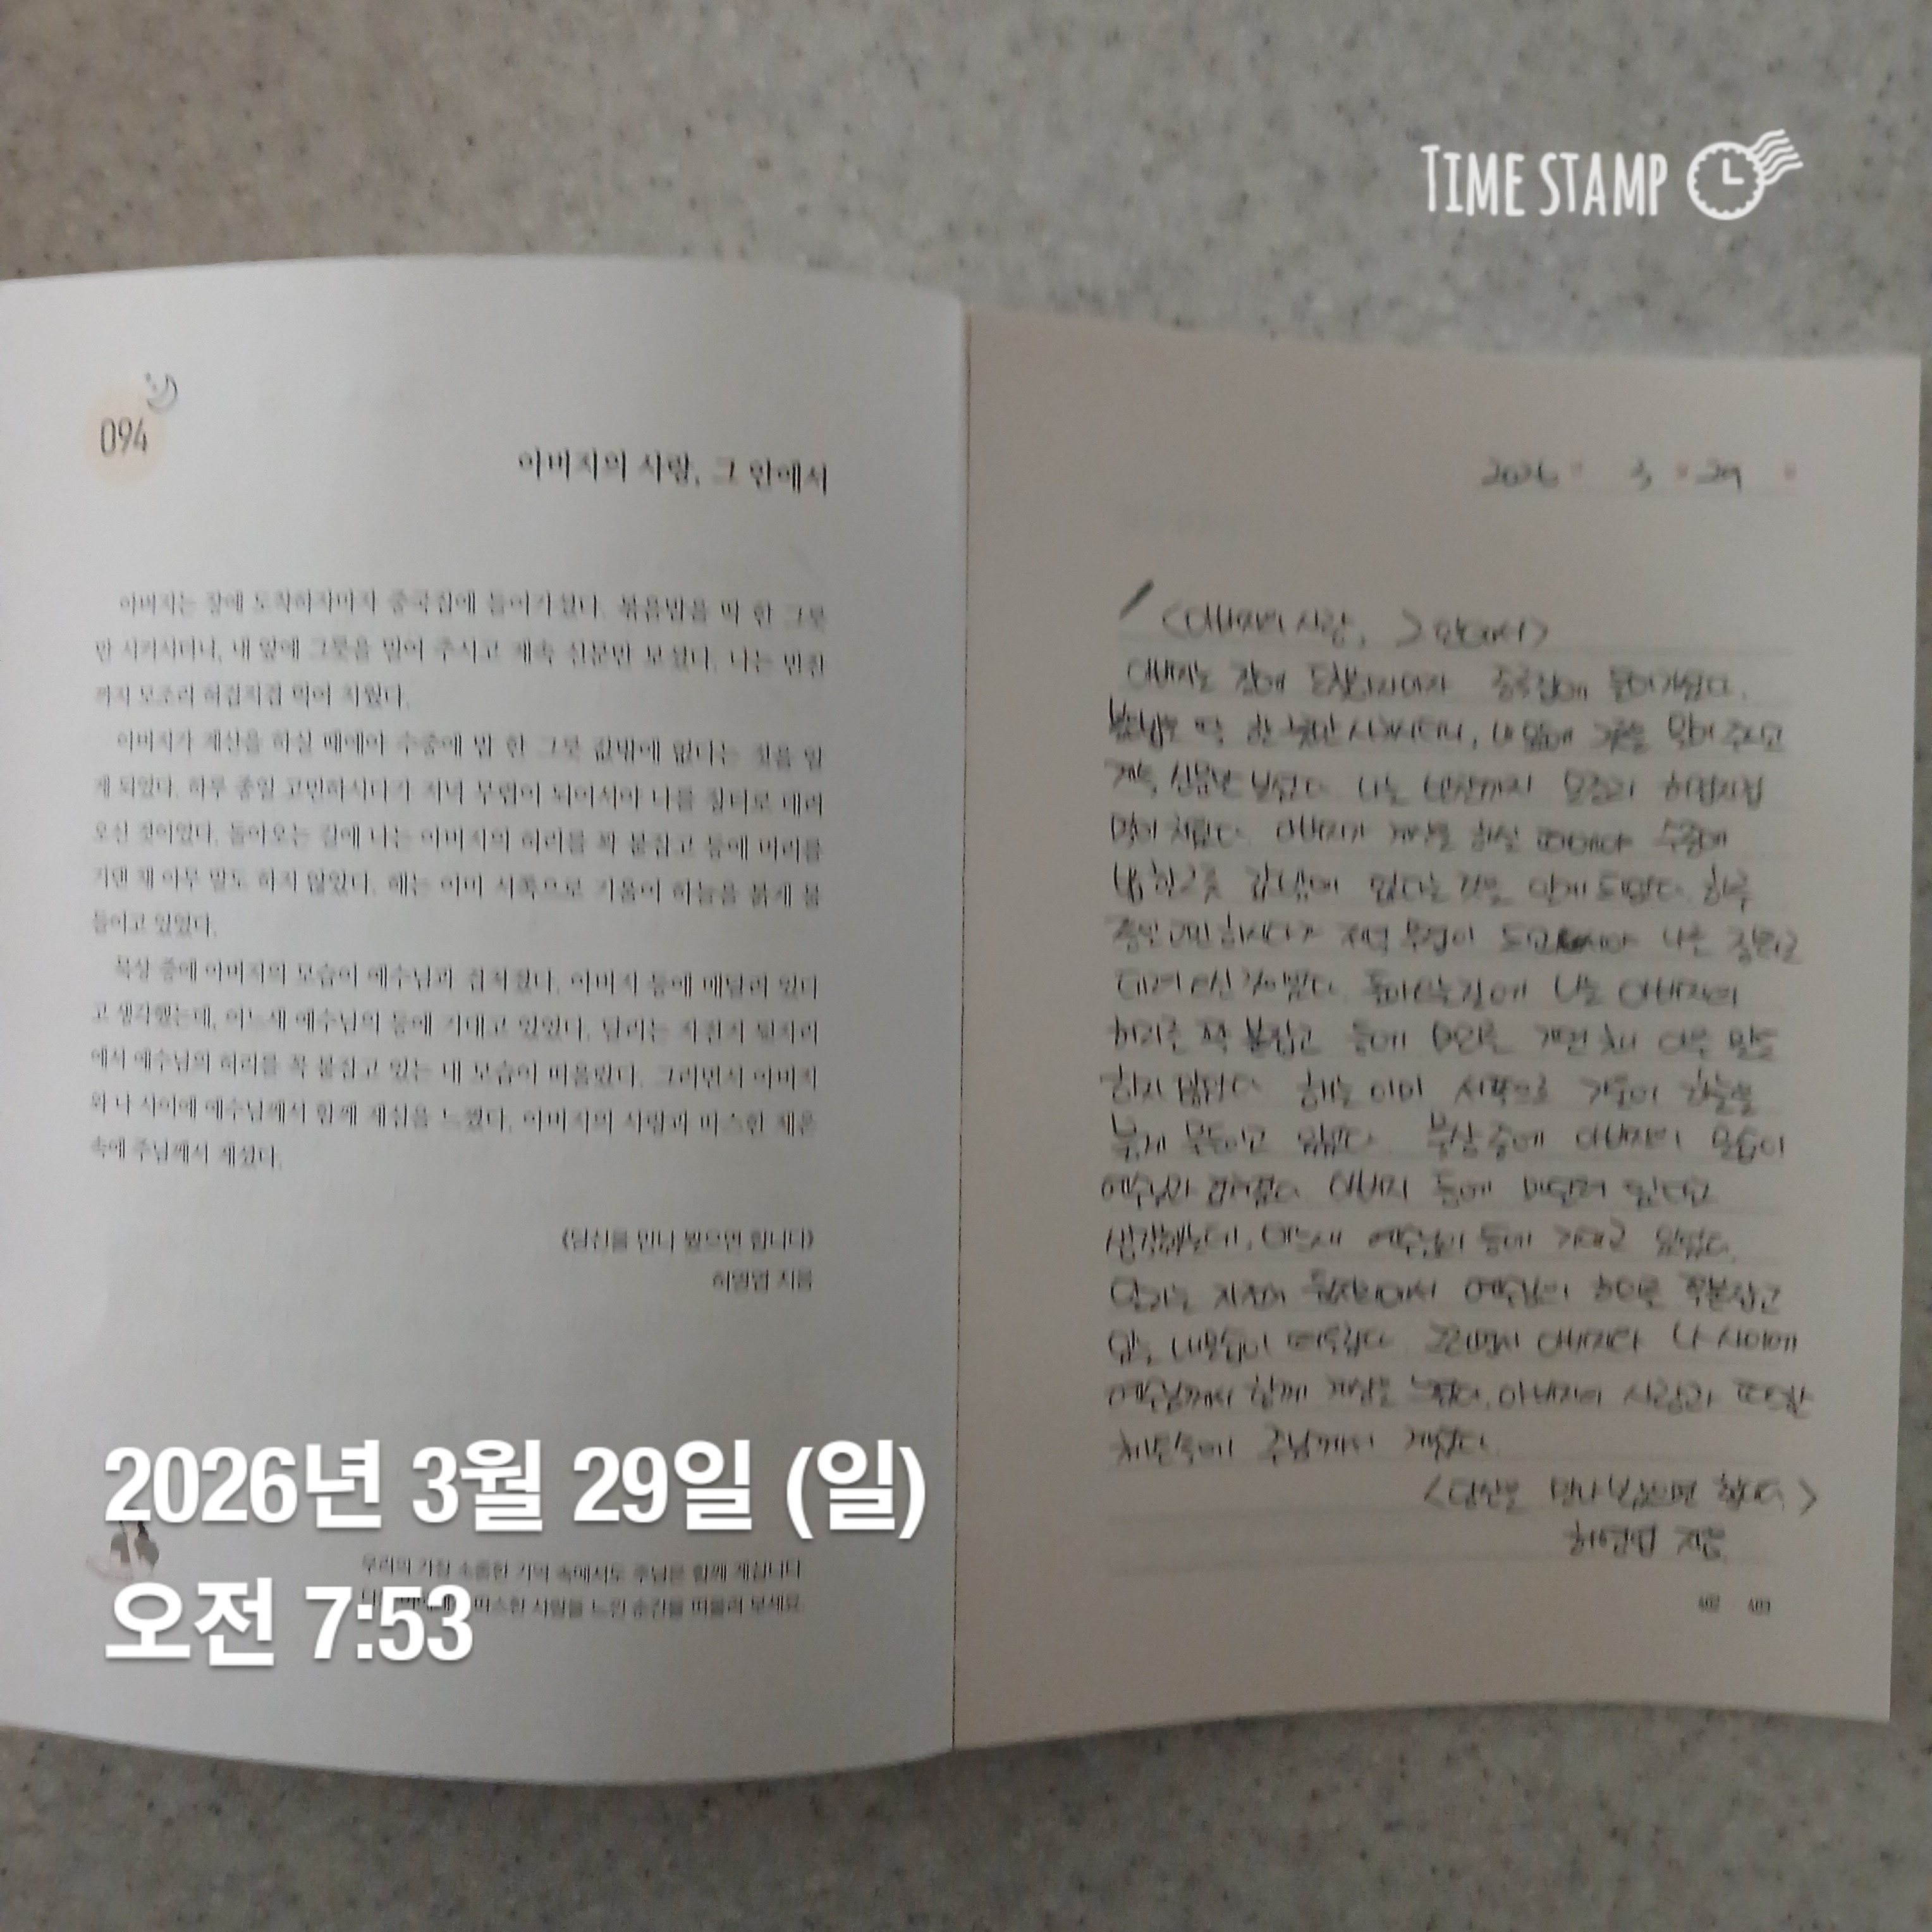 TIME STAMP
094
아버지의 사랑, 그 안에서
아버지는 장에 도착하자마자 중국집에 들어가셨다. 볶음밥을 딱 한 그릇
만 시키시더니, 내 앞에 그릇을 밀어 주시고 계속 신문만 보셨다. 나는 반찬
까지 모조리 허겁지겁 먹어 치웠다.
아버지가 계산을 하실 때에야 수중에 밥 한 그릇 값밖에 없다는 것을 알
게 되었다. 하루 종일 고민하시다가 저녁 무렵이 되어서야 나를 장터로 데려
오신 것이었다. 돌아오는 길에 나는 아버지의 허리를 꽉 붙잡고 등에 머리를
기댄 채 아무 말도 하지 않았다. 해는 이미 서쪽으로 기울어 하늘을 붉게 물
들이고 있었다.
묵상 중에 아버지의 모습이 예수님과 겹쳐졌다. 아버지 등에 매달려 있다
고 생각했는데, 어느새 예수님의 등에 기대고 있었다. 달리는 자전거 뒷자리
에서 예수님의 허리를 꼭 붙잡고 있는 내 모습이 떠올랐다. 그러면서 아버지
와 나 사이에 예수님께서 함께 계심을 느꼈다. 아버지의 사랑과 따스한 체온
속에 주님께서 계셨다.
《당신을 만나 봤으면 합니다》
허영엽 지음
우리의 가장 소중한 기억 속에서도 주님은 함께 계십니다
따스한 사랑을 느낀 순간을 떠올려 보세요.
2026년 3월 29일 (일)
오전 7:53
2026 3 29
<아버지의 사랑, 그 안에서>
아버지는 장에 도착하자마자 중국집에 들어가셨다.
딱 한 그릇만 시키시더니, 내 앞에 그릇을 밀어 주시고
계속 신문만 보셨다. 나는 반찬까지 모조리 허겁지겁
먹어 치웠다. 아버지가 계산을 하실 때에야 수중에
밥 한그릇 값밖에 없다는 것을 알게 되었다. 하루
종일 고민하시다가 저녁 무렵이 나를 장터로
데려오신 것이었다. 돌아오는 길에 나는 아버지의
허리를 꽉 붙잡고 등에 머리를 기댄 채 아무 말도
하지 않았다. 해는 이미 서쪽으로 기울어 하늘을
붉게 물들이고 있었다. 묵상 중에 아버지의 모습이
예수님과 겹쳐졌다. 아버지 등에 매달려 있다고
생각했는데, 어느새 예수님의 등에 기대고 있었다.
달리는 자전거 뒷자리에서 예수님의 허리를 꼭붙잡고
있는 내모습이 떠올랐다. 그러면서 아버지와 나 사이에
예수님께서 함께 계심을 느꼈다. 아버지의 사랑과 따스한
체온속에 주님께서 계셨다.
<당신을 만나 봤으면 합니다>
허영엽 지음
402 403